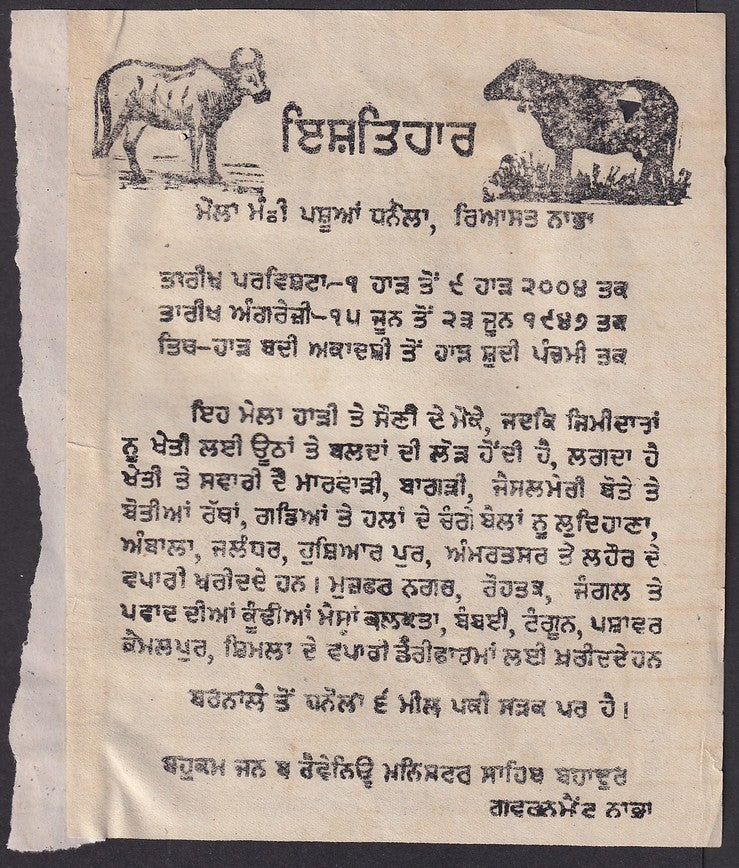 ਇਸ਼ਤਿਹਾਰ
ਮੇਲਾ ਮੰਡੀ ਪਸ਼ੂਆਂ ਧਨੌਲਾ, ਰਿਆਸਤ ਨਾਭਾ
ਤਾਰੀਖ ਪਰਵਿਸ਼ਟਾ–੧ ਹਾੜ ਤੋਂ ੯ ਹਾੜ ੨੦੦੪ ਤਕ
ਤਾਰੀਖ ਅੰਗਰੇਜ਼ੀ–੧੫ ਜੂਨ ਤੋਂ ੨੩ ਜੂਨ ੧੯੪੭ ਤਕ
ਤਿਥ–ਹਾੜ ਬਦੀ ਅਕਾਦਸ਼ੀ ਤੋਂ ਹਾੜ ਸ਼ੁਦੀ ਪੰਚਮੀ ਤਕ
ਇਹ ਮੇਲਾ ਹਾੜੀ ਤੇ ਸੌਣੀ ਦੇ ਮੌਕੇ, ਜਦਕਿ ਜ਼ਿਮੀਦਾਰਾਂ
ਨੂ ਖੇਤੀ ਲਈ ਊਠਾਂ ਤੇ ਬਲਦਾਂ ਦੀ ਲੋੜ ਹੋਂਦੀ ਹੈ, ਲਗਦਾ ਹੈ
ਖੇਤੀ ਤੇ ਸਵਾਰੀ ਦੇ ਮਾਰਵਾੜੀ, ਬਾਗੜੀ, ਜੈਸਲਮੇਰੀ ਬੋਤੇ ਤੇ
ਬੋਤੀਆਂ ਰੱਥਾਂ, ਗਡਿਆਂ ਤੇ ਹਲਾਂ ਦੇ ਚੰਗੇ ਬੈਲਾਂ ਨੂ ਲੁਦਿਹਾਣਾ,
ਅੰਬਾਲਾ, ਜਲੰਧਰ, ਹੁਸ਼ਿਆਰ ਪੁਰ, ਅੰਮਰਤਸਰ ਤੇ ਲਹੌਰ ਦੇ
ਵਪਾਰੀ ਖ਼ਰੀਦਦੇ ਹਨ। ਮੁਜ਼ਫਰ ਨਗਰ, ਰੋਹਤਕ, ਜੰਗਲ ਤੇ
ਪਵਾਦ ਦੀਆਂ ਕੂੰਢੀਆਂ ਮੈਸਾਂ ਕਲਕਤਾ, ਬੰਬਈ, ਰੰਗੂਨ, ਪਸ਼ਾਵਰ
ਕੈਮਲਪੁਰ, ਸ਼ਿਮਲਾ ਦੇ ਵਪਾਰੀ ਡੈਰੀਫਾਰਮਾਂ ਲਈ ਖ਼ਰੀਦਦੇ ਹਨ
ਬਰਨਾਲੇ ਤੋਂ ਧਨੌਲਾ ੬ ਮੀਲ ਪਕੀ ਸੜਕ ਪਰ ਹੈ।
ਬਹੁਕਮ ਜਨ ਬ ਰੈਵੇਨਿਊ ਮਨਿਸਟਰ ਸਾਹਿਬ ਬਹਾਦੁਰ
ਗਵਰਨਮੈਂਟ ਨਾਭਾ